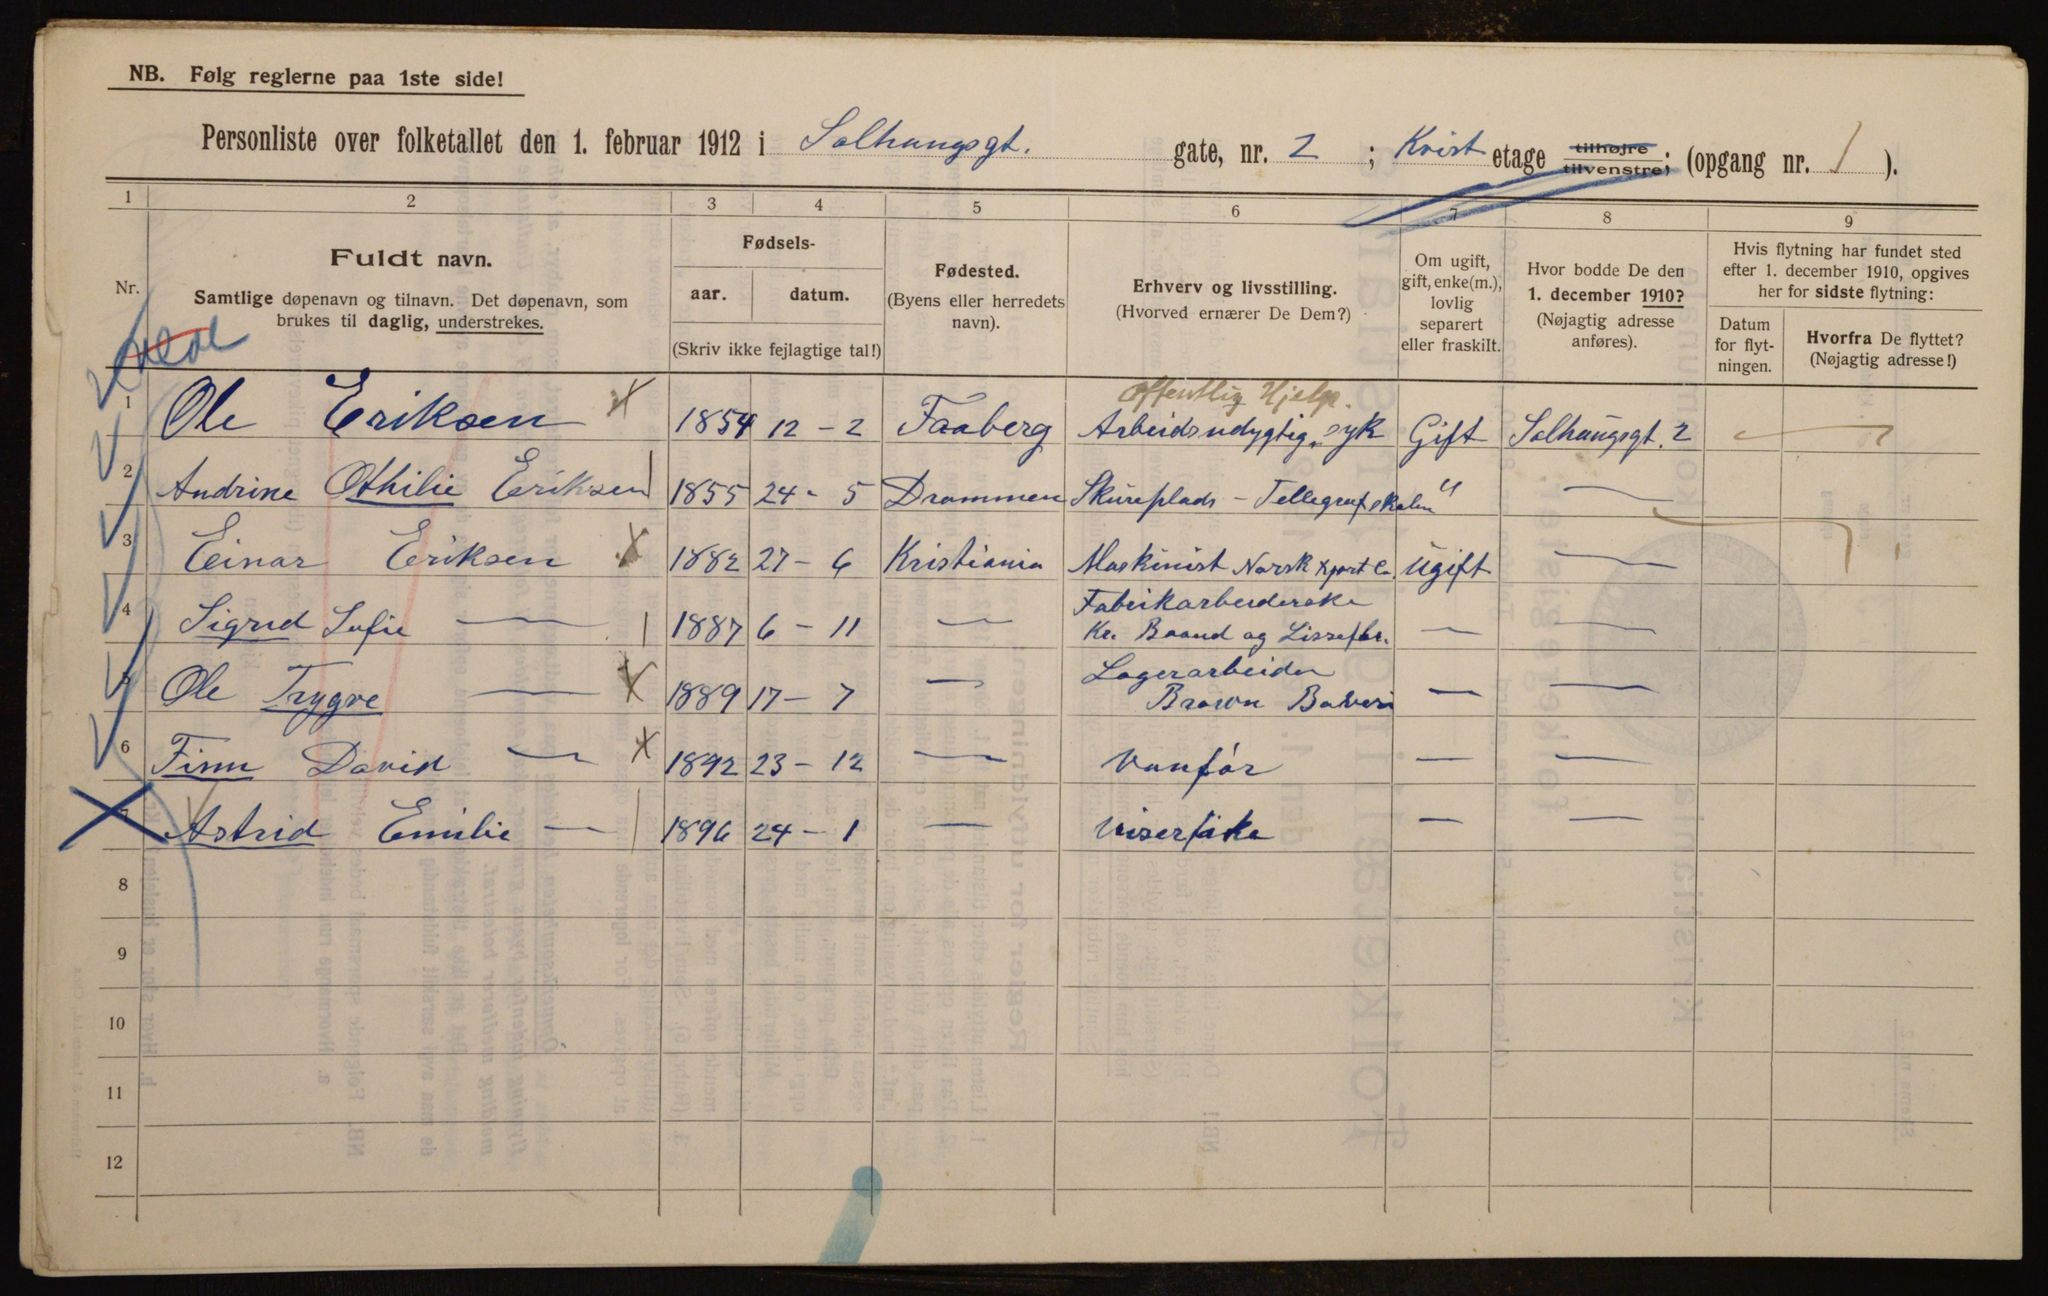 NB. Følg reglerne paa 1ste side!
Personliste over folketallet den 1. februar 1912 i Solhaugsgt. gate, nr. 2 ; Kvist etage tilhøjre tilvenstre; (opgang nr. 1 ).
1 2 3 4 5 6 7 8 9
Nr.
Fuldt navn.
Samtlige døpenavn og tilnavn. Det døpenavn, som
brukes til daglig, understrekes.
Fødsels-
aar. datum.
(Skriv ikke fejlagtige tal!)
Fødested.
(Byens eller herredets
navn).
Erhverv og livsstilling.
(Hvorved ernærer De Dem?)
Om ugift,
gift, enke(m.),
lovlig
separert
eller fraskilt.
Hvor bodde De den
1. december 1910?
(Nøjagtig adresse
anføres).
Hvis flytning har fundet sted
efter 1. december 1910, opgives
her for sidste flytning:
Datum
for flyt-
ningen.
Hvorfra De flyttet?
(Nøjagtig adresse!)
Offentlig Hjelp.
1 Ole Eriksen 1854 12 - 2 Faaberg Arbeidsudygtig, syk Gift Solhaugsgt. 2
2 Andrine Othilie Eriksen 1855 24 - 5 Drammen Skureplads - Tellegrafskolen " —
3 Einar Eriksen 1882 27 - 6 Kristiania Maskinist Norsk Xport Co. Ugift —
Fabrikarbeiderske
4 Sigrid Sofie — 1887 6 - 11 — Kr. Baand og Lissefbr. — —
Lagerarbeider
5 Ole Trygve — 1889 17 - 7 — Brown Boveri — —
6 Finn David — 1892 23 - 12 — Vanfør — —
7 Astrid Emilie — 1896 24 - 1 — Viserpike — —
8
9
10
11
12